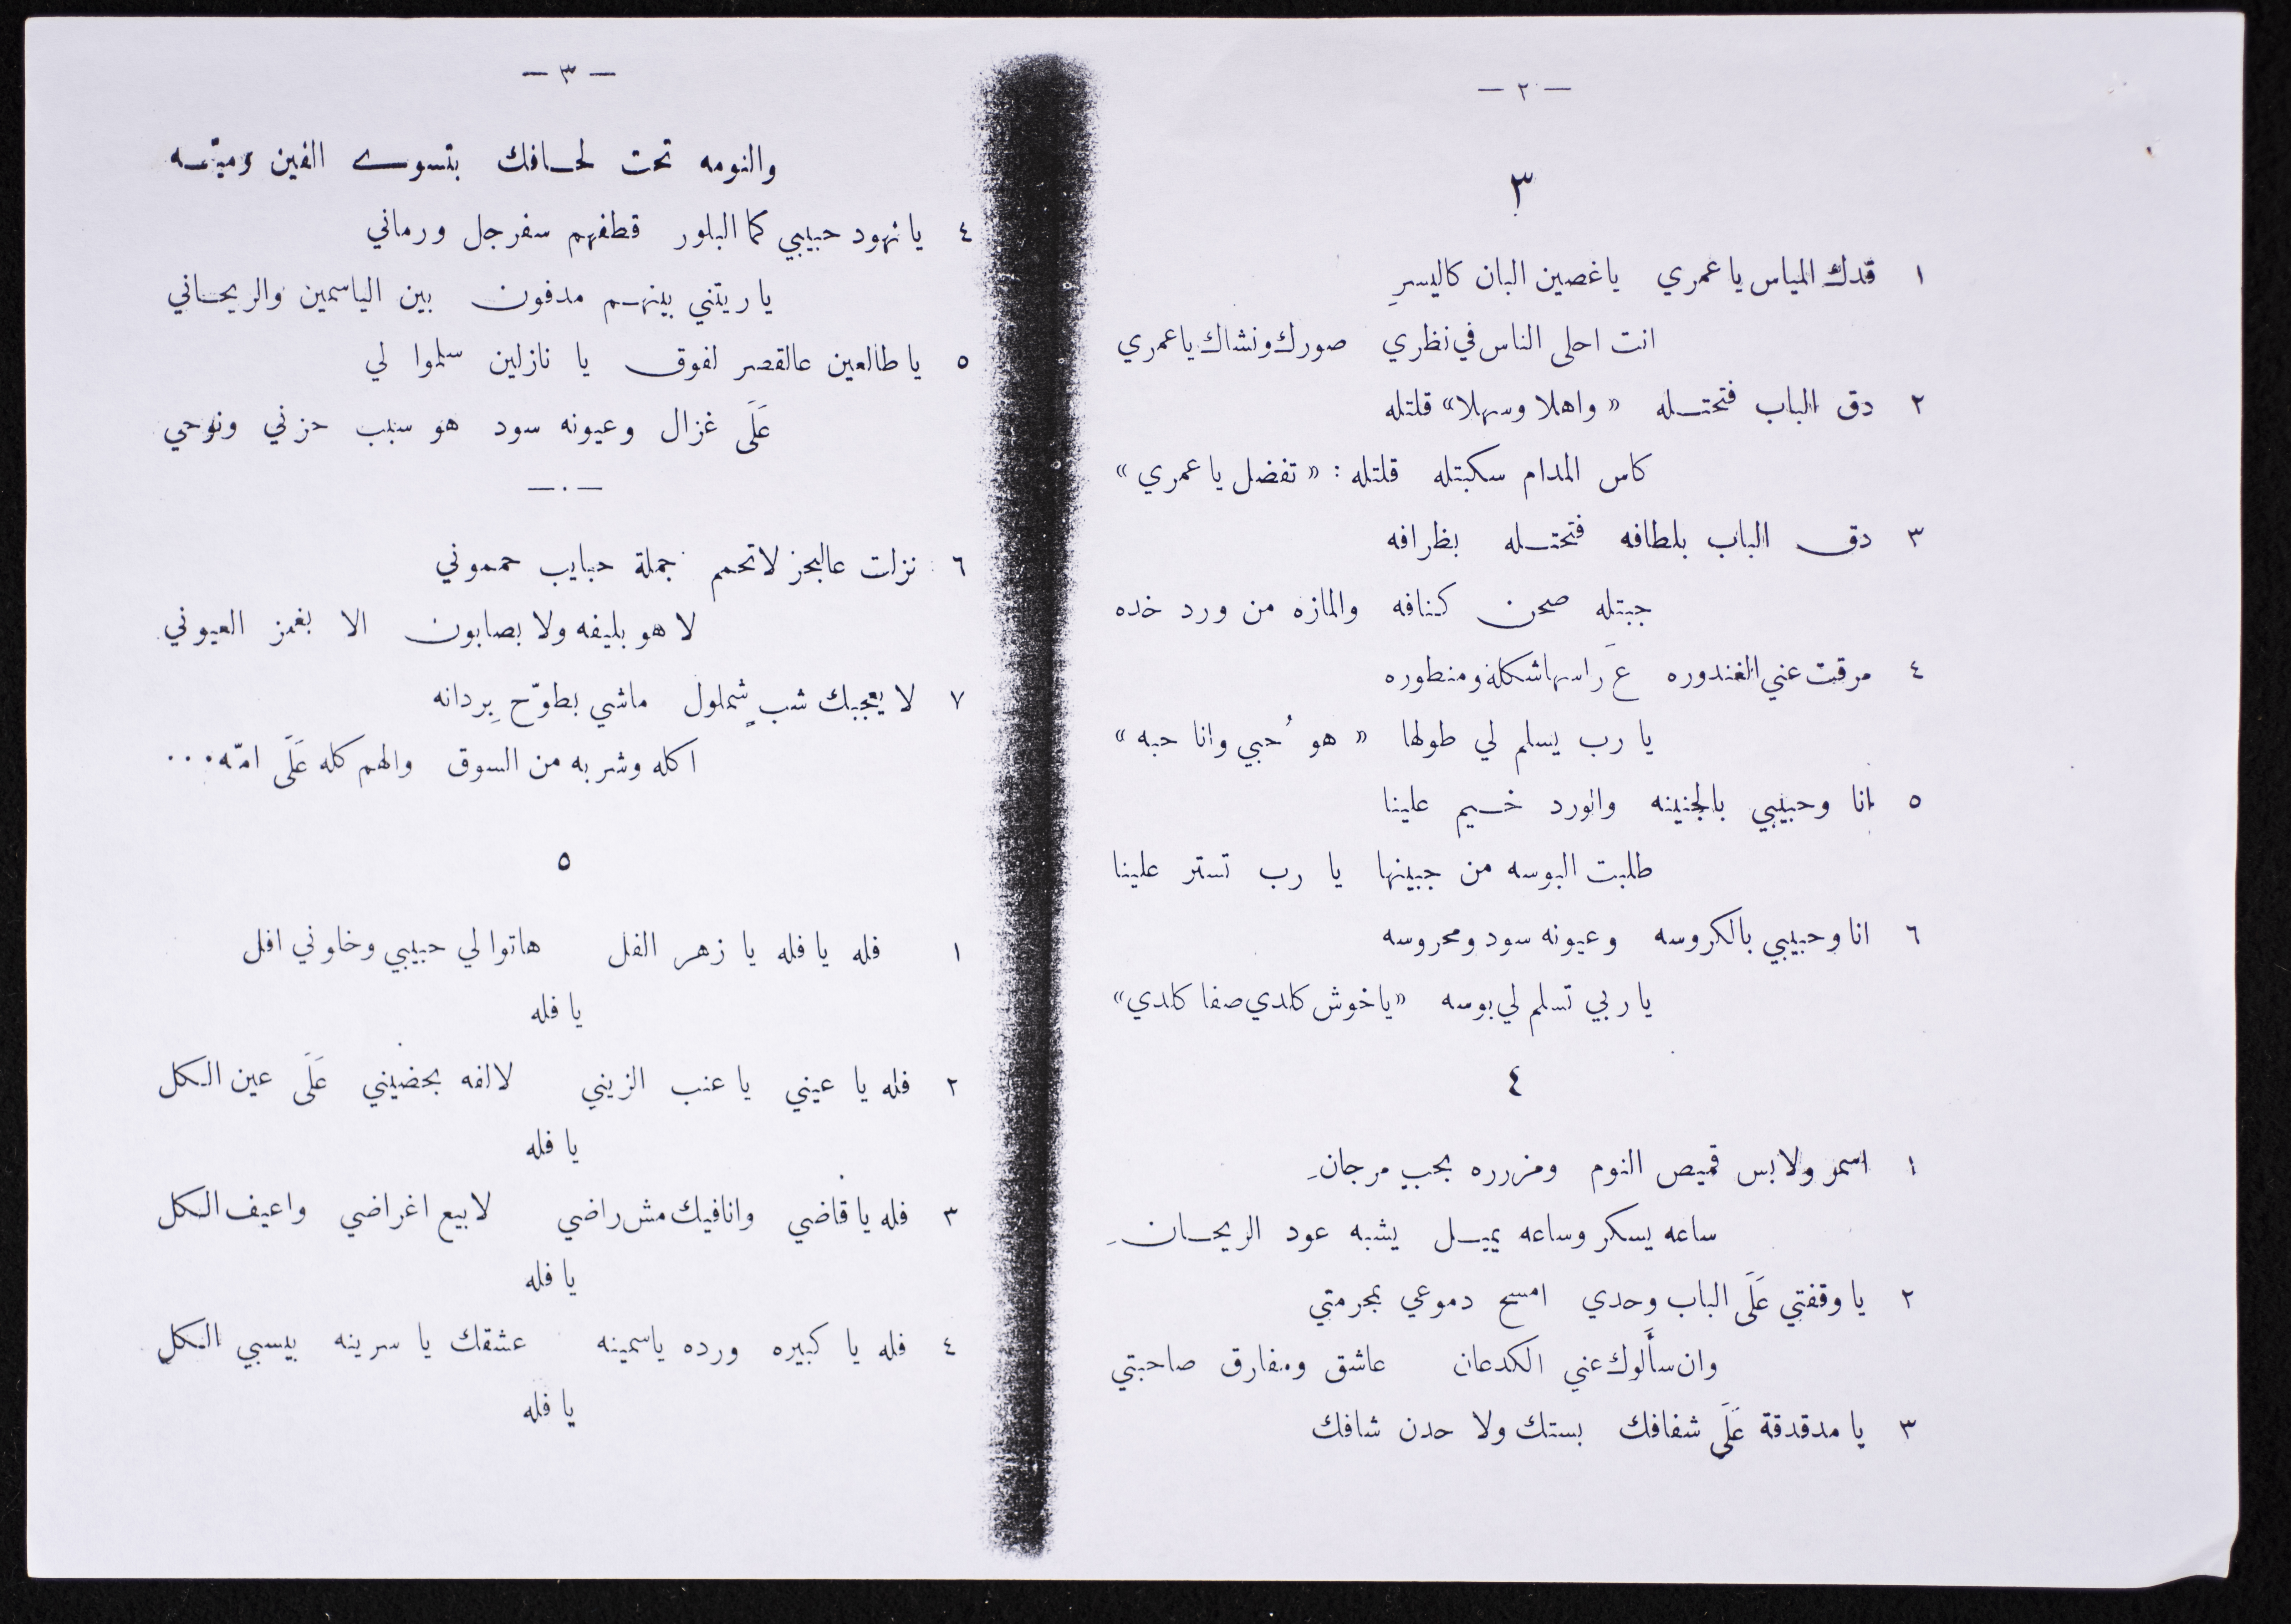 — ٢ —
٣
١ قدك المياس يا عمري يا غصين البان كاليسرِ
انت احلى الناس في نظري صورك ونشاك يا عمري
٢ دق الباب فتحتـله « واهلا وسهلا » قلتله
كاس المدام سكبتله قلتله : « تفضل يا عمري »
٣ دق الباب بلطافه فتحتـله بظرافه
جبتله صحن كنافه والمازه من ورد خده
٤ مرقت عني الغندوره عَ راسها شكله ومنطوره
يا رب يسلم لي طولها « هو حُبي وانا حبه »
٥ انا وحبيبي بالجنينه والورد خـيم علينا
طلبت البوسه من جبينها يا رب تستر علينا
٦ انا وحبيبي بالكروسه وعيونه سود ومحروسه
يا ربي تسلم لي بوسه « يا خوش كلدي صفا كلدي »
٤
١ اسمر ولابس قميص النوم ومزرره بحبِ مرجانِ
ساعه يسكر وساعه يميـل يشبه عود الريحـانِ
٢ يا وقفتي عَلَى الباب وحدي امسح دموعي بمحرمتي
وان سأَلوك عني الكدعان عاشق ومفارق صاحبتي
٣ يا مدقدقة عَلَى شفافك بستك ولا حدن شافك
— ٣ —
والنومه تحت لحـافك بتسوى الفين وميّـه
٤ يا نهود حبيبي كما البلور قطفهم سفرجل ورماني
يا ريتني بينهـم مدفون بين الياسمين والريحـاني
٥ يا طالعين عالقصر لفوق يا نازلين سلموا لي
عَلَى غزال وعيونه سود هو سبب حزني ونوحي
— ٠ —
٦ نزلت عالبحر لاتحمم جملة حبايب حمموني
لا هو بليفه ولا بصابون الا بغمز العيوني
٧ لا يعجبك شبٍ شملول ماشي بطوّح بِردانه
اكله وشربه من السوق والهم كله عَلَى امّه ...
٥
١ فله يا فله يا زهر الفل هاتوا لي حبيبي وخاوني افل
يا فله
٢ فله يا عيني يا عنب الزيني لالفه بحضيني عَلَى عين الكل
يا فله
٣ فله يا قاضي وانا فيك مش راضي لابيع اغراضي واعيف الكل
يا فله
٤ فله يا كبيره ورده ياسمينه عشقك يا سرينه بيسبي الكل
يا فله